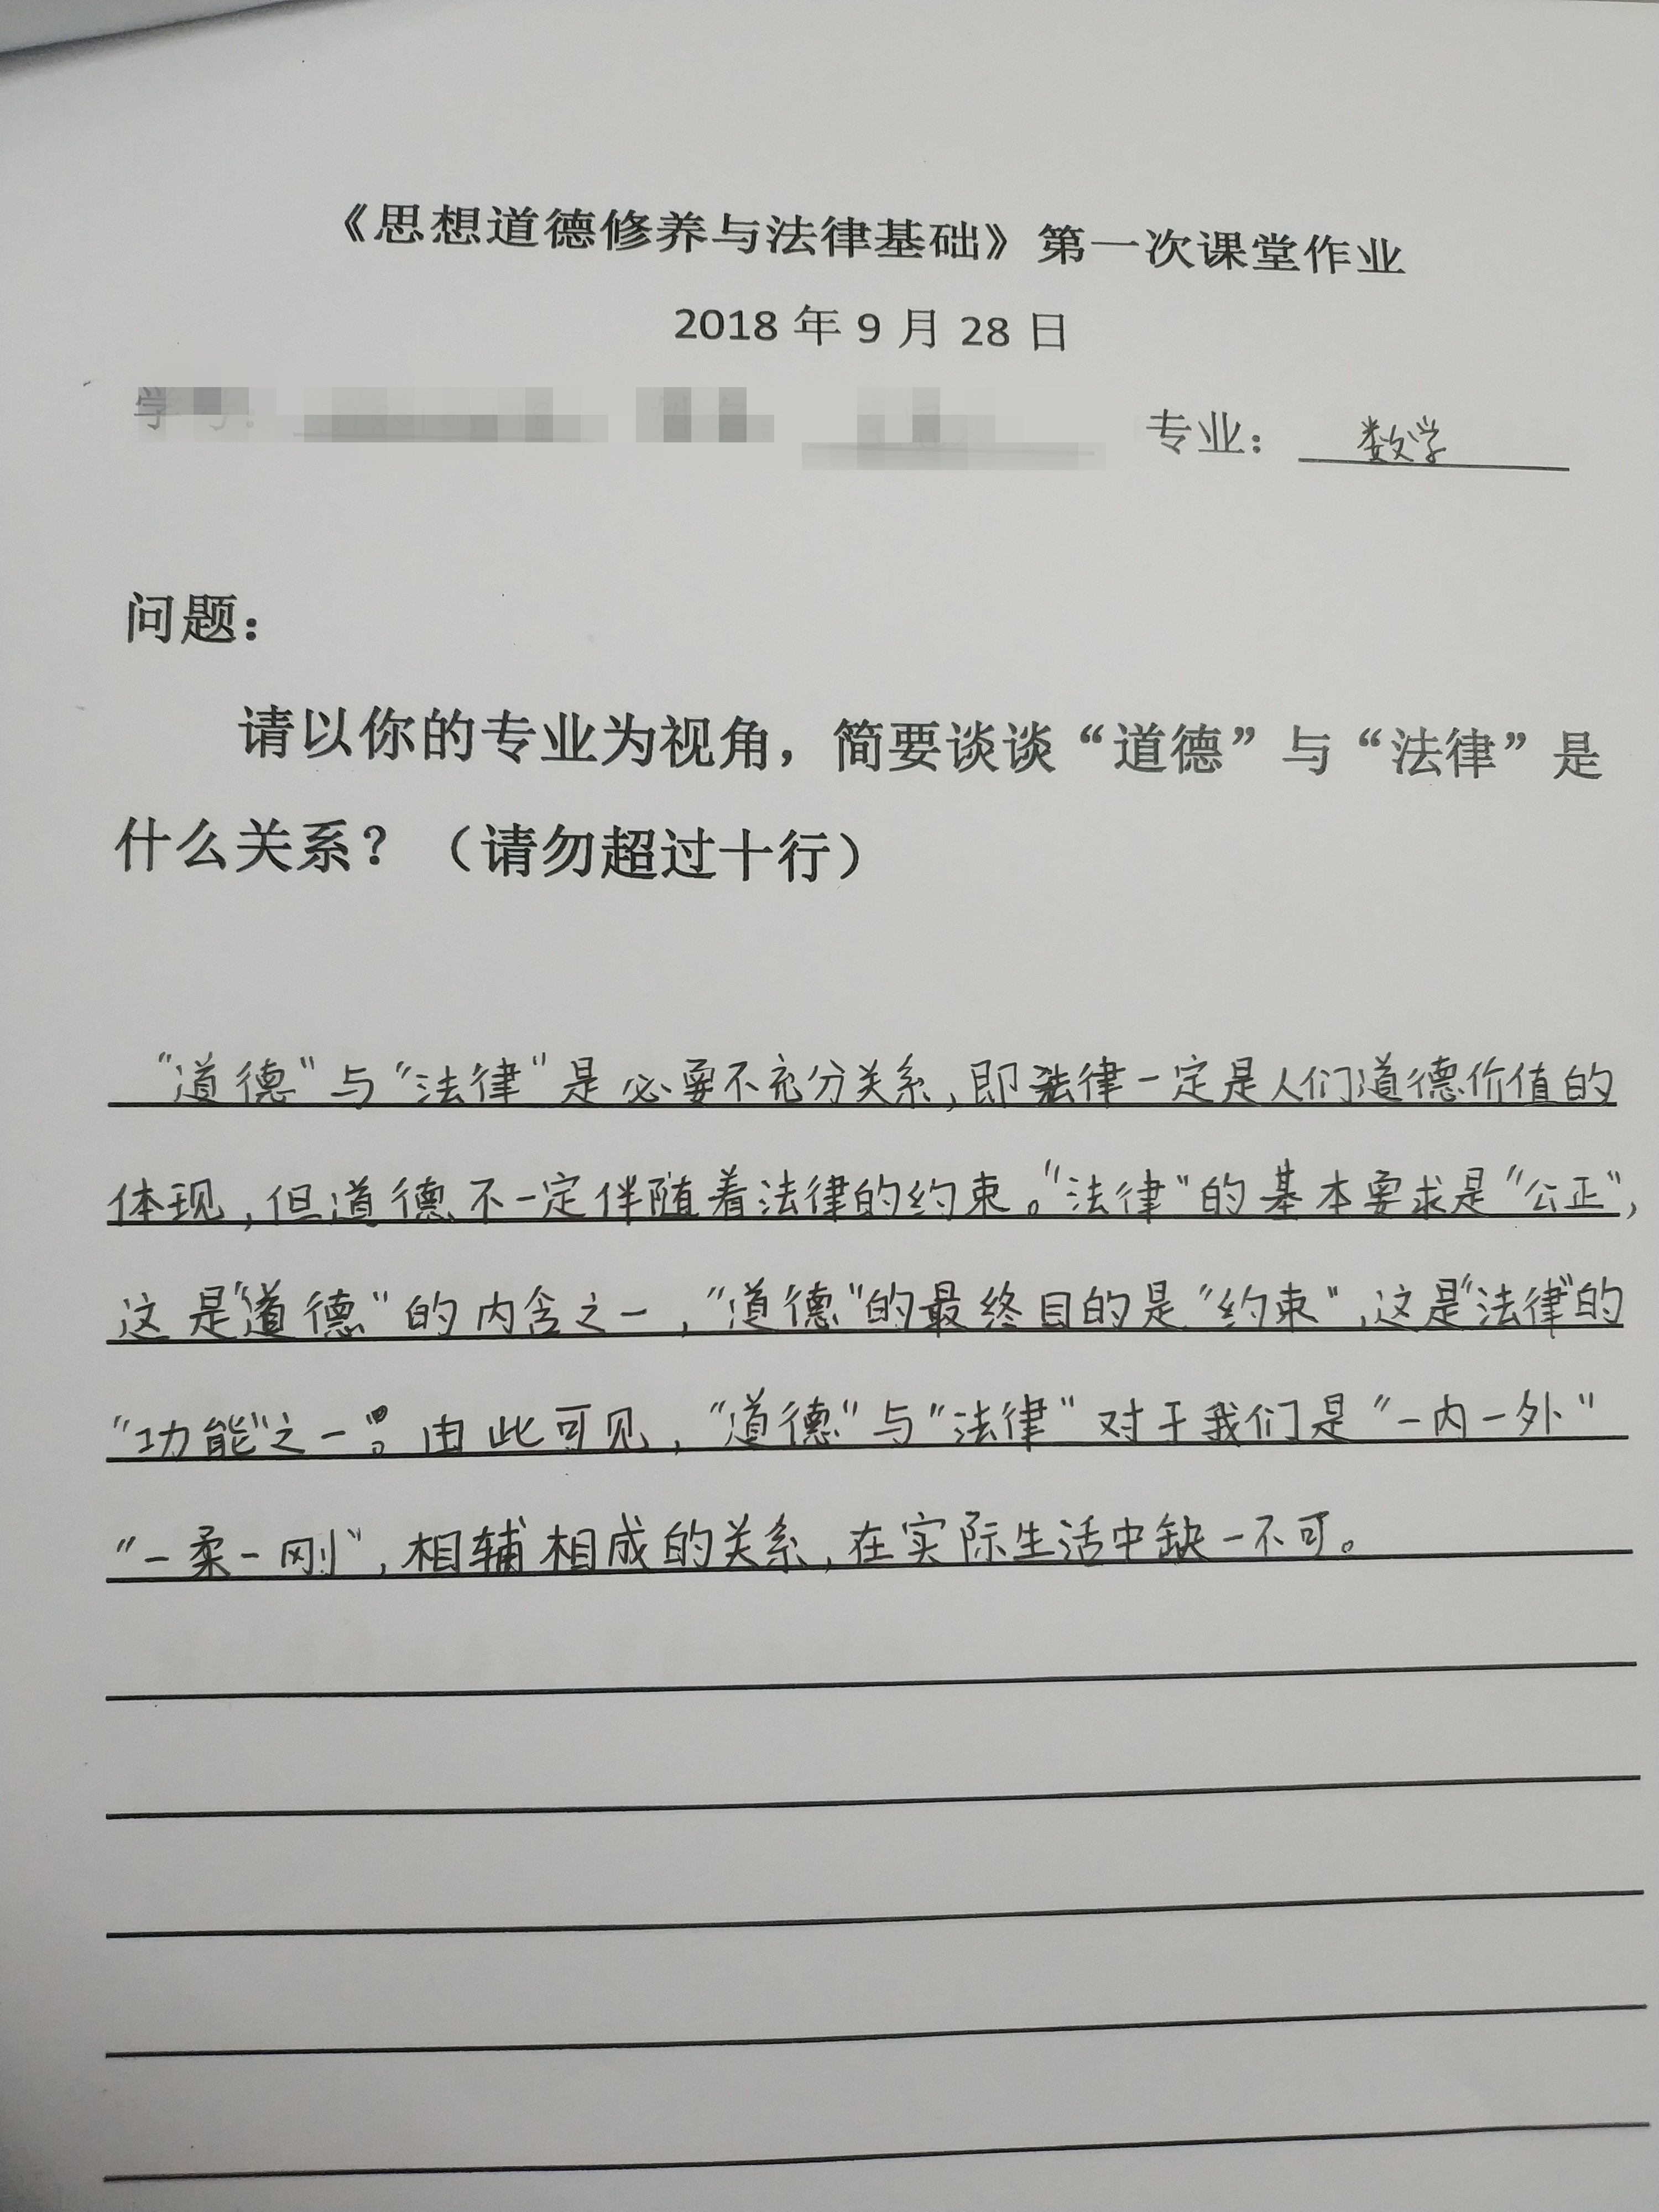 《思想道德修养与法律基础》第一次课堂作业
2018 年 9 月 28 日
学号： 专业： 数学
问题：
请以你的专业为视角，简要谈谈“道德”与“法律”是
什么关系？（请勿超过十行）
“道德”与“法律”是必要不充分关系，即法律一定是人们道德价值的
体现，但道德不一定伴随着法律的约束。“法律”的基本要求是“公正”，
这是“道德”的内含之一，“道德”的最终目的是“约束”，这是“法律”的
“功能”之一。由此可见，“道德”与“法律”对于我们是“一内一外”
“一柔一刚”，相辅相成的关系，在实际生活中缺一不可。